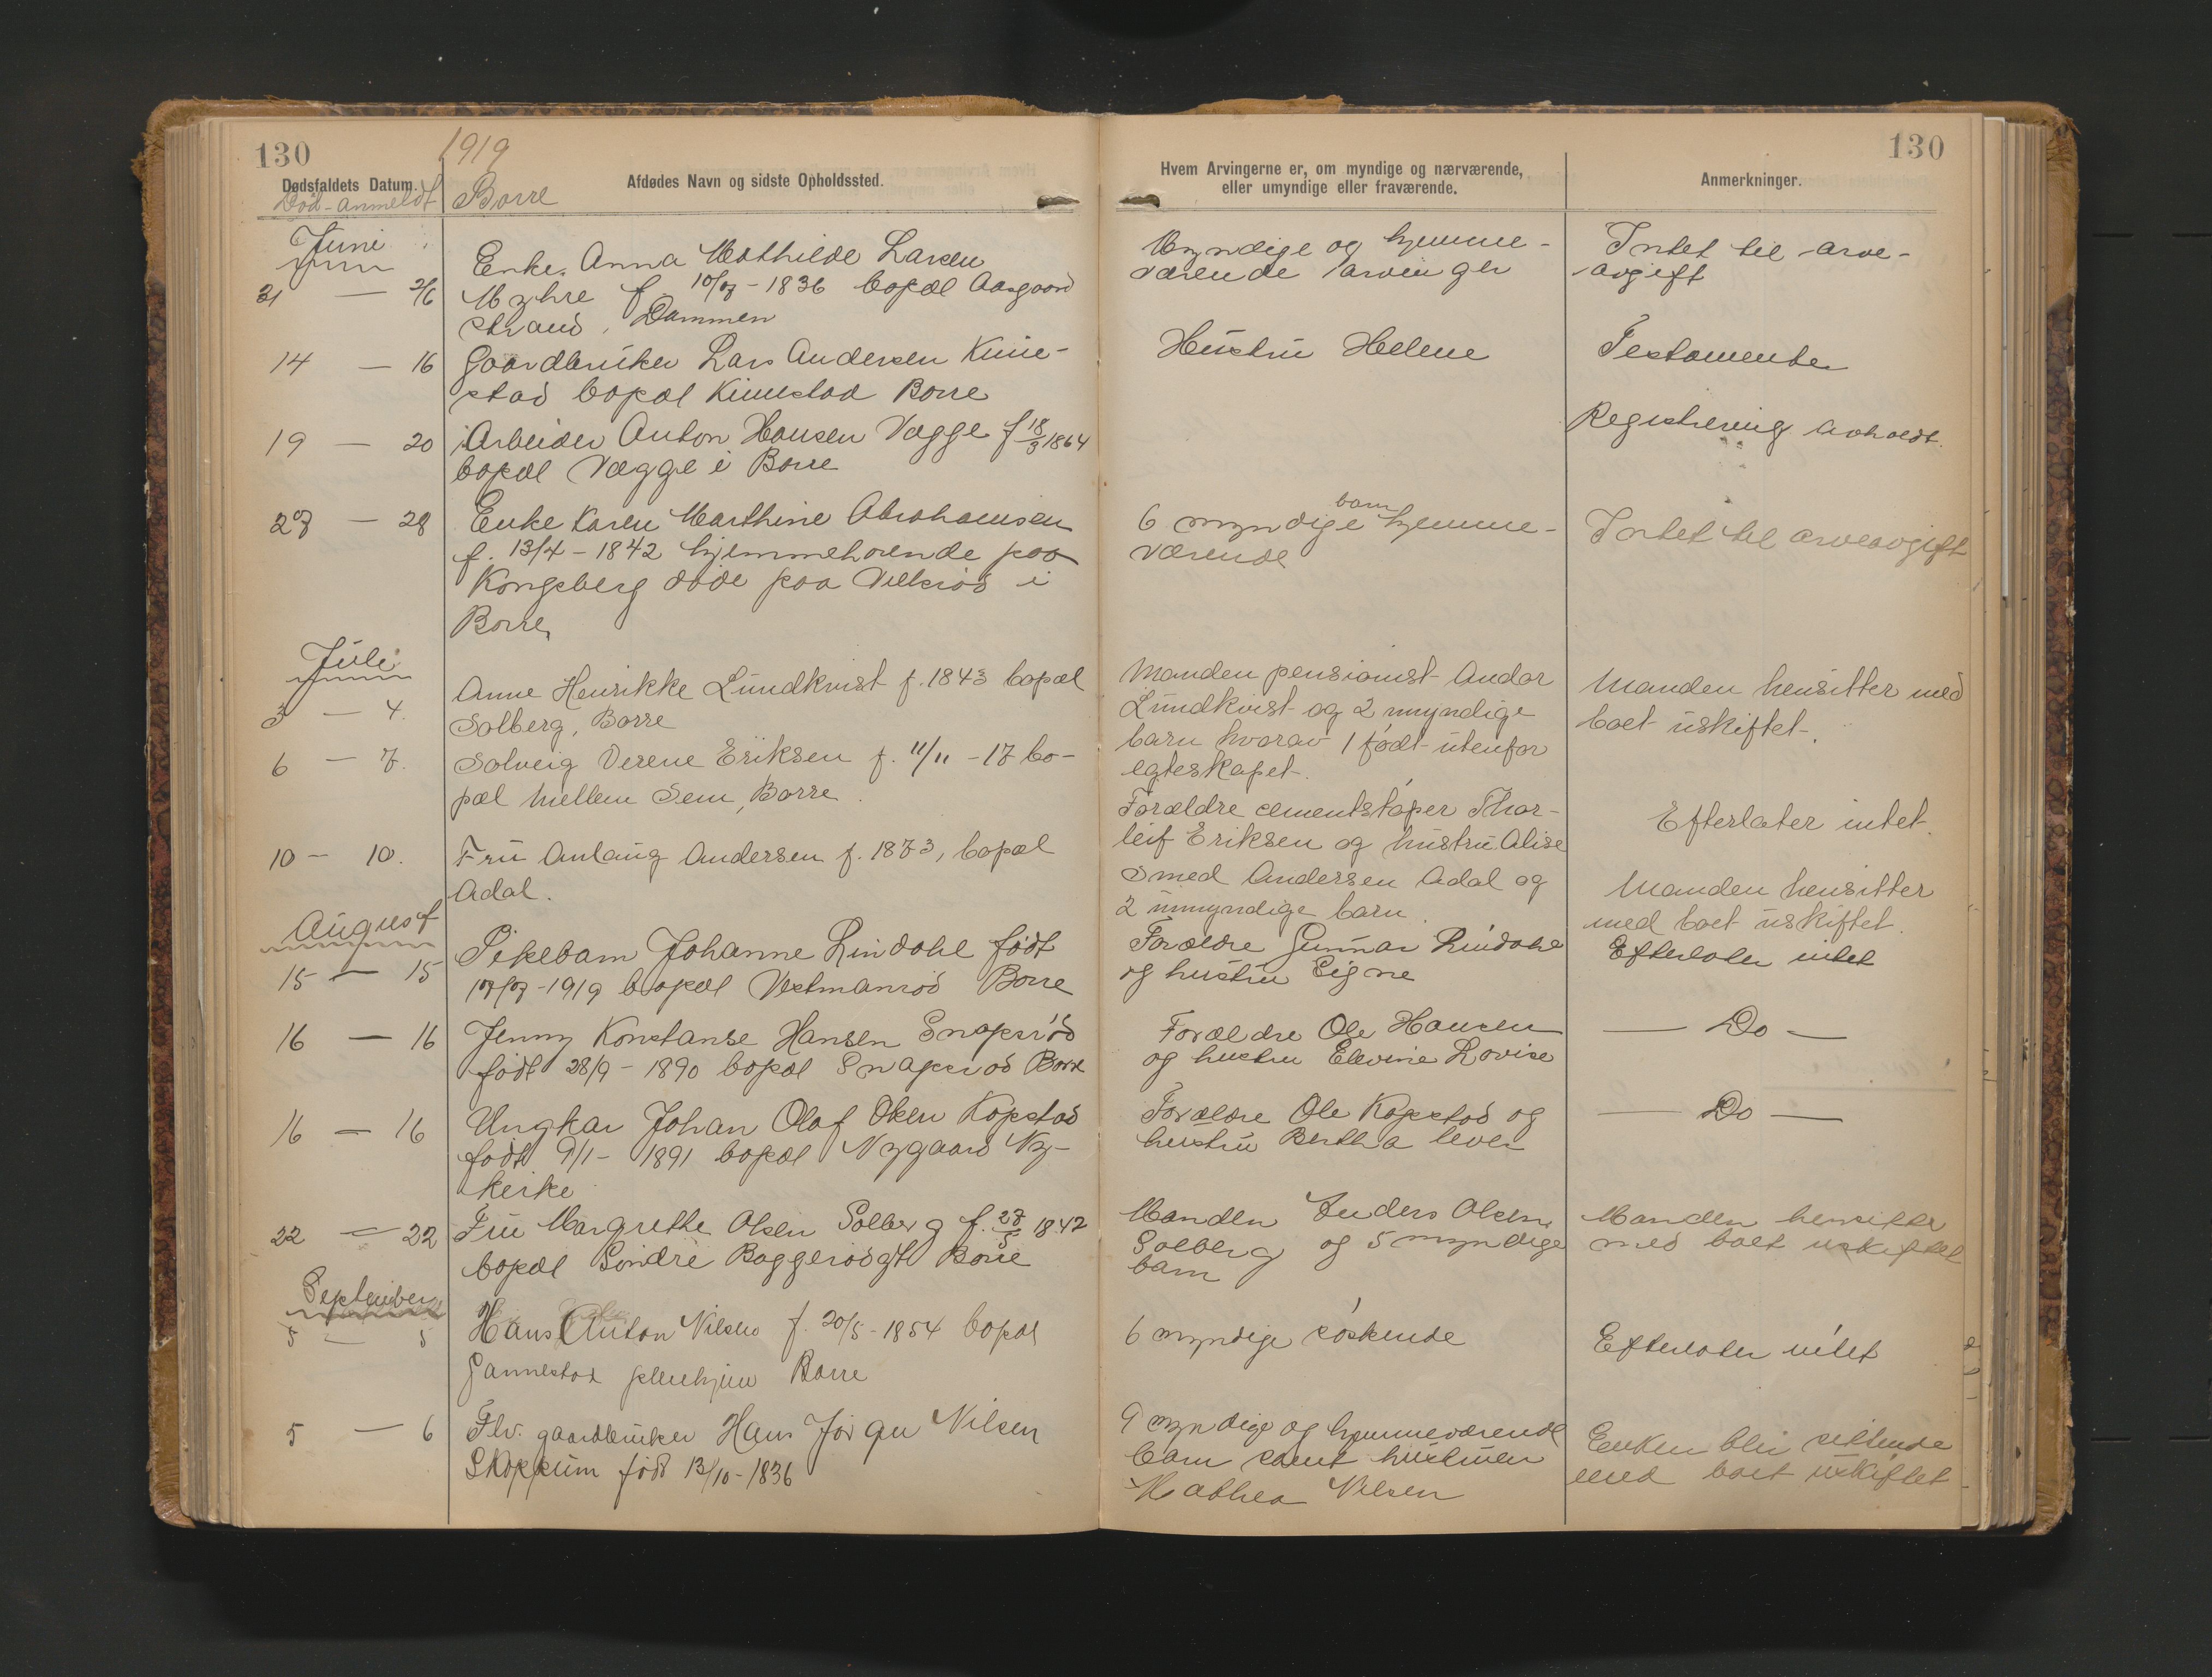 130
1919
Dødsfaldets Datum.
Afdødes Navn og sidste Opholdssted.
Død-anmeldt
Borre
Juni
Enke Anna Mathilde Larsen
31 — 2/6 Myhre f. 10/7-1836 bopæl Aasgaard
strand, Dammen
14 — 16 Gaardbruker Lars Andersen Kine-
stad bopæl Kinestad Borre
19 — 20 Arbeider Anton Hansen Vægge f 18/3 1864
bopæl Vægge i Borre
27 — 28 Enke Karen Marthine Abrahamsen
f. 13/4-1842 hjemmehørende paa
Kongsberg døde paa i
Borre
Juli
Anne Henrikke Lundkvist f. 1843 bopæl
3 — 4. Solberg, Borre
6 — 7. Solveig Verene Eriksen f. 11/11-17 bo-
pæl mellem Sem, Borre.
10 — 10. Fru Anlaug Andersen f. 1873, bopæl
Adal.
August
Pikebarn Johanne Lindahl født
15 — 15 17/7-1919 bopæl Vestmanrød Borre
16 — 16 Jenny Konstanse Hansen Snapsrød
født 28/9-1890 bopæl Snapsrød Borre
16 — 16 Ungkar Johan Olaf Olsen Kopstad
født 9/1-1891 bopæl Nygaard Ny-
kirke
22 — 22 Fru Margrethe Olsen Solberg f. 27/5 1842
bopæl Søndre Baggerødgt Borre
September
5 — 5 Hans Anton Nilsen f. 20/5-1854 bopæl
Gannestad pleiehjem Borre
5 — 6 Flv. gaardbruker Hans Jørgen Nilsen
Skoppum født 13/10-1836
130
Hvem Arvingerne er, om myndige og nærværende,
eller umyndige eller fraværende.
Anmerkninger.
Myndige og hjemme-
værende arvinger
Intet til arve-
avgift
Hustru Helene
Testamente
Registrering avholdt.
barn
6 myndige hjemme-
værende
Intet til arveavgift
Manden pensionist Andor
Lundkvist og 2 myndige
barn hvorav 1 født utenfor
egteskapet.
Manden hensitter med
boet uskiftet.
Forældre cementstøper Thor-
leif Eriksen og hustru Alise
Efterlater intet.
Smed Andersen Adal og
2 umyndige barn.
Manden hensitter
med boet uskiftet.
Forældre Gunnar Lindahl
og hustru Signe
Efterlater intet
Forældre Ole Hansen
og hustru Elevine Lovise
— Do —
Forældre Ole Kopstad og
hustru Bertha lever
— Do —
Manden Anders Olsen
Solberg og 5 myndige
barn
Manden hensitter
med boet uskiftet
6 myndige søskende
Efterlater intet
9 myndige og hjemmeværende
barn samt hustruen
Mathea Nilsen
Enken blir sittende
med boet uskiftet